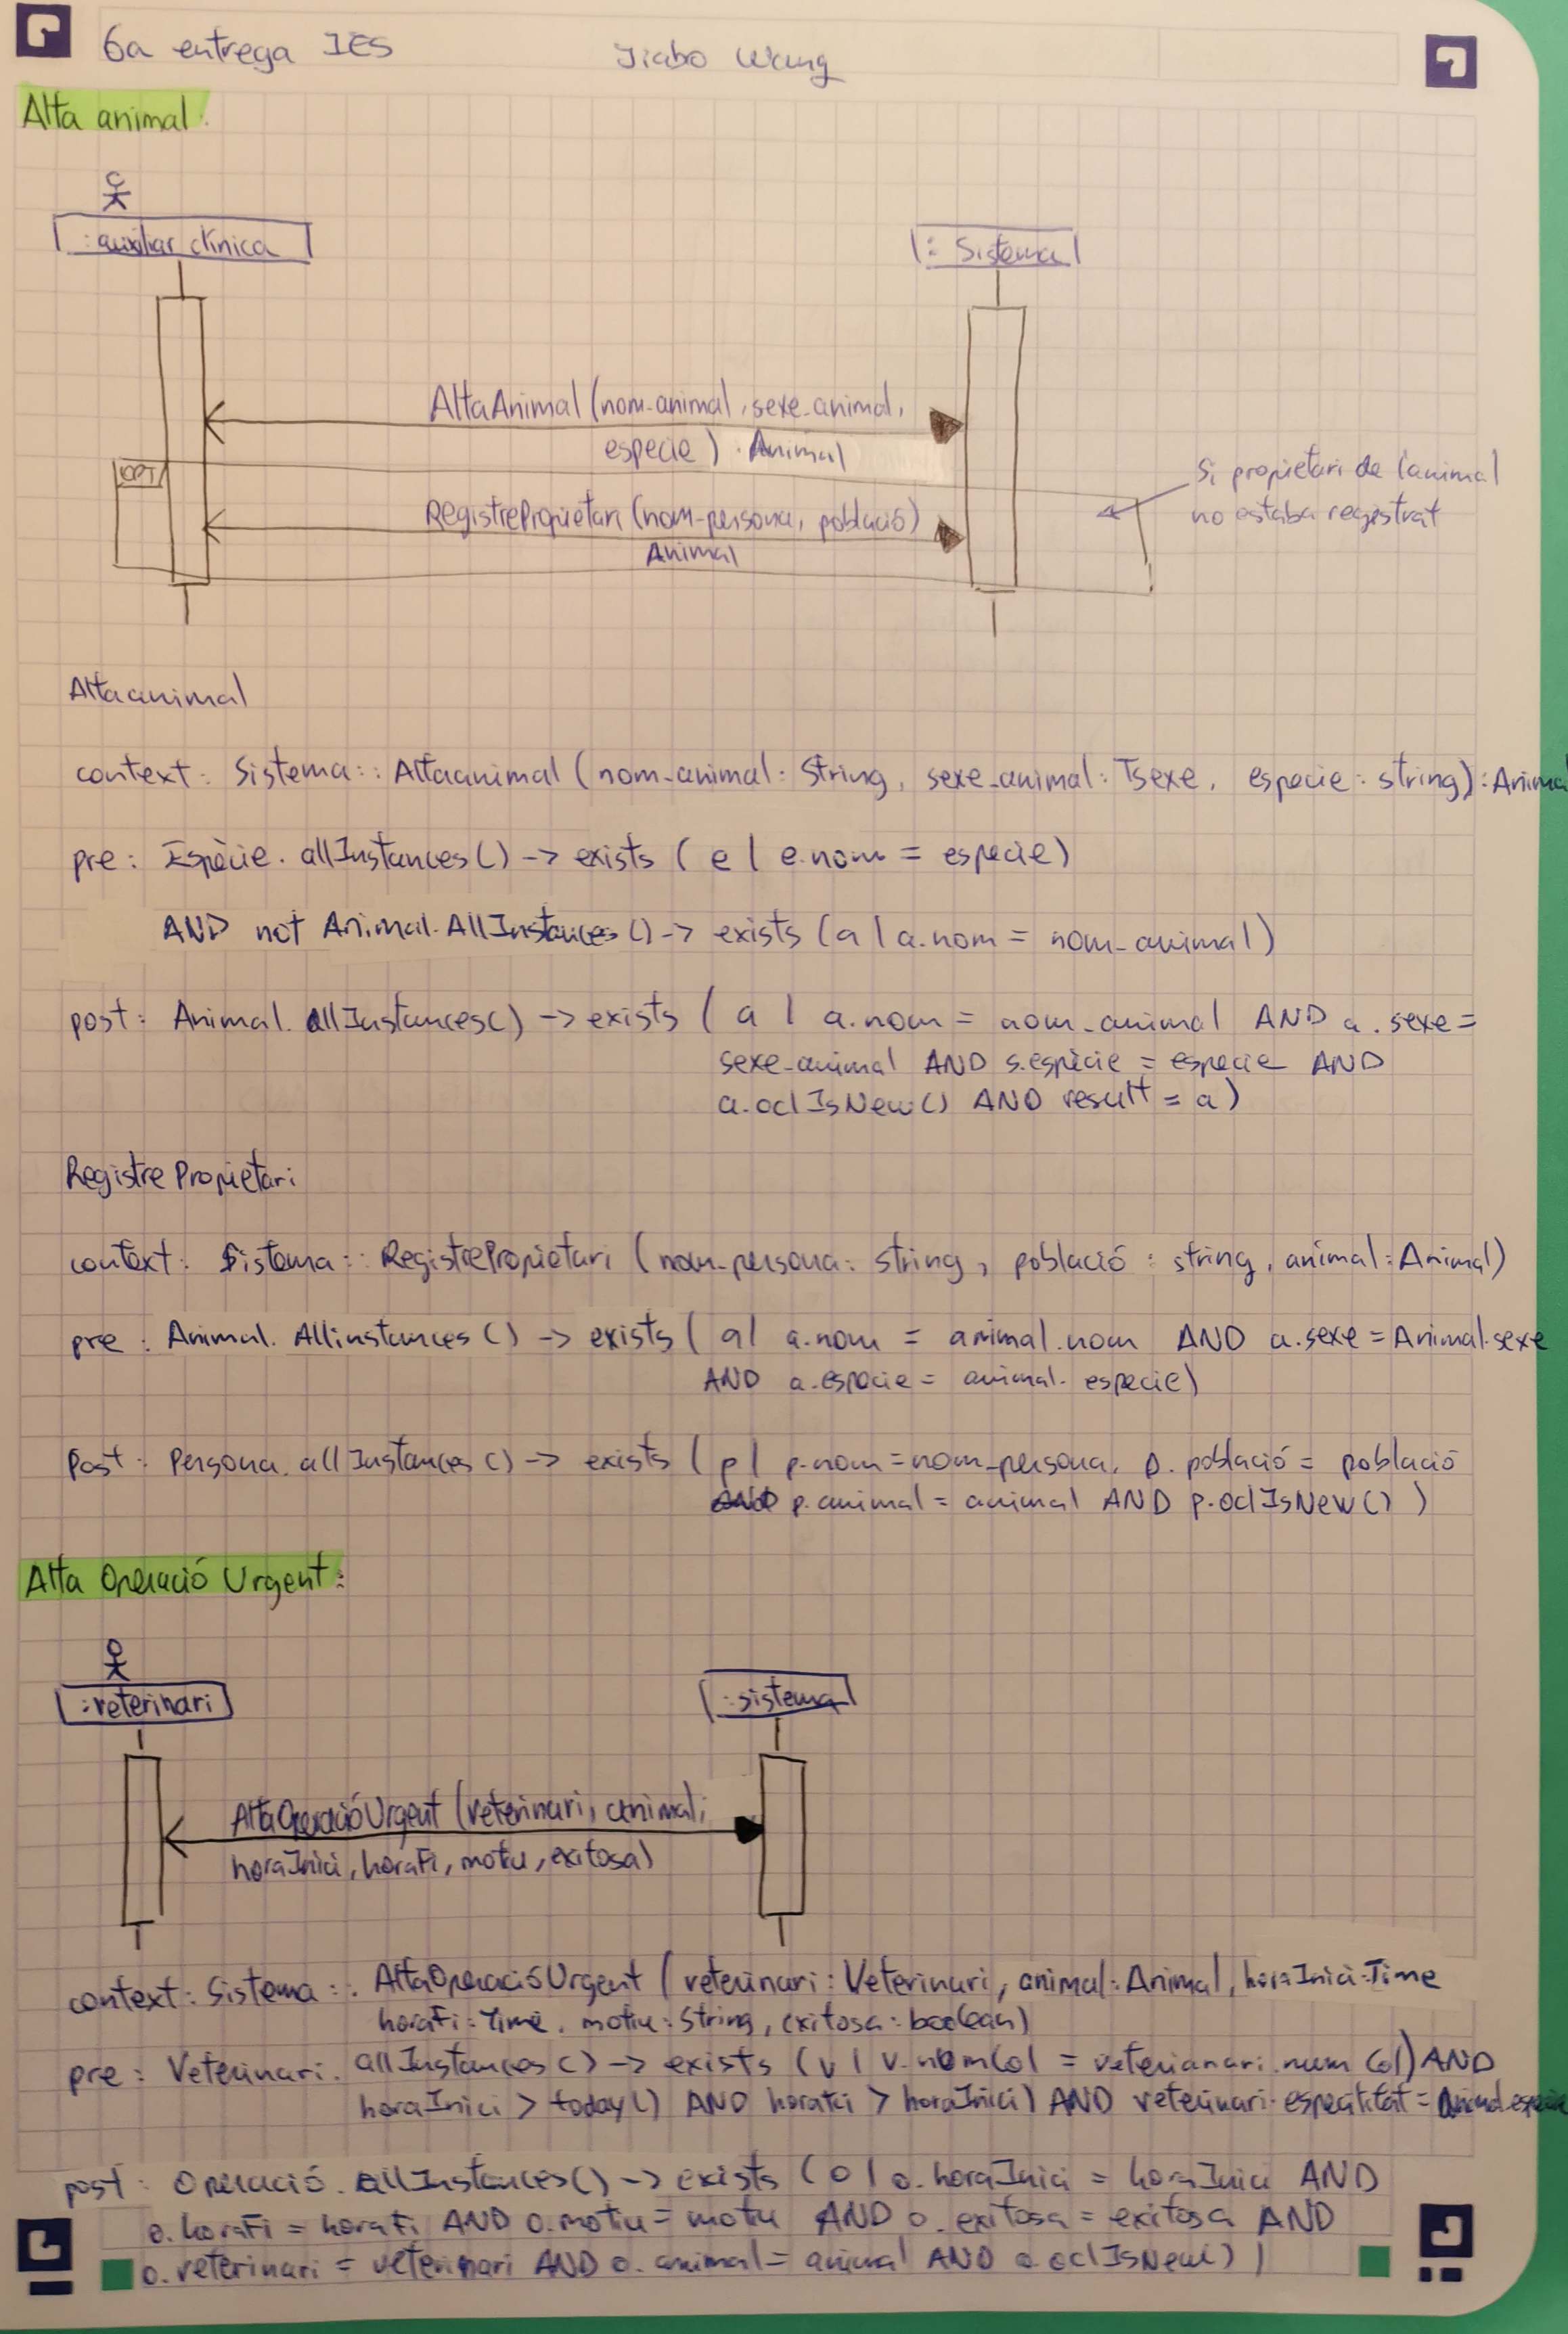 6a entrega IES
Jiabo Wang
Alta animal:
:auxiliar clínica
: Sistema
AltaAnimal (nom-animal, sexe-animal,
especie) : Animal
OPT
Si propietari de l'animal
no estaba registrat
RegistrePropietari (nom-persona, població)
Animal
Altaanimal
context: Sistema:: Altaanimal (nom-animal: String, sexe-animal: Tsexe, especie: string): Animal
pre: Espècie. allInstances() -> exists (e | e.nom = especie)
AND not Animal. AllInstances () -> exists (a | a.nom = nom-animal)
post: Animal. allInstances() -> exists (a | a.nom = nom-animal AND a.sexe =
sexe-animal AND s.espècie = especie AND
a.oclIsNew() AND result = a)
Registre Propietari
context: Sistema:: RegistrePropietari (nom-persona: string, població: string, animal: Animal)
pre: Animal. Allinstances () -> exists (a | a.nom = animal.nom AND a.sexe = Animal.sexe
AND a.especie = animal.especie)
Post: Persona. allInstances () -> exists (p | p.nom = nom-persona, p.població = població
p.animal = animal AND p.oclIsNew())
Alta Operació Urgent:
:veterinari
:sistema
AltaOperacióUrgent (veterinari, animal,
horaInici, horaFi, motiu, exitosa)
context: Sistema:: AltaOperacióUrgent (veterinari: Veterinari, animal: Animal, horaInici: Time
horaFi: Time, motiu: String, exitosa: boolean)
pre: Veterinari. allInstances() -> exists (v | v.numCol = veterianari.num Col) AND
horaInici > today() AND horaFi > horaInici) AND veterinari.especialitat = Animal.especie
post: Operació. allInstances() -> exists (o | o.horaInici = horaInici AND
o.horaFi = horaFi AND o.motiu = motiu AND o.exitosa = exitosa AND
o.veterinari = veterinari AND o.animal = animal AND o.oclIsNew())